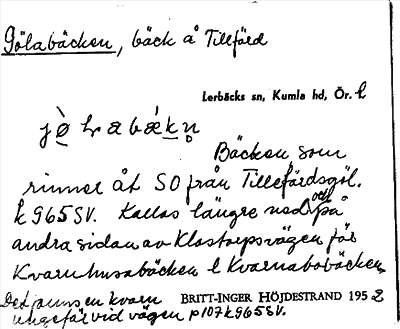 Gölabäcken, bäck å Tillfärd
Lerbäcks sn, Kumla hd, Ör. l
Bäcken som
rinner åt SO från Tillefärdsgöl.
k 965 SV. Kallas längre ned och på
andra sidan av Klastorpsvägen för
Kvarnhusabäcken l Kvarnabobäcken
Det fanns en kvarn BRITT-INGER HÖJDESTRAND 1952
ungefär vid vägen p 107 k 965 SV.